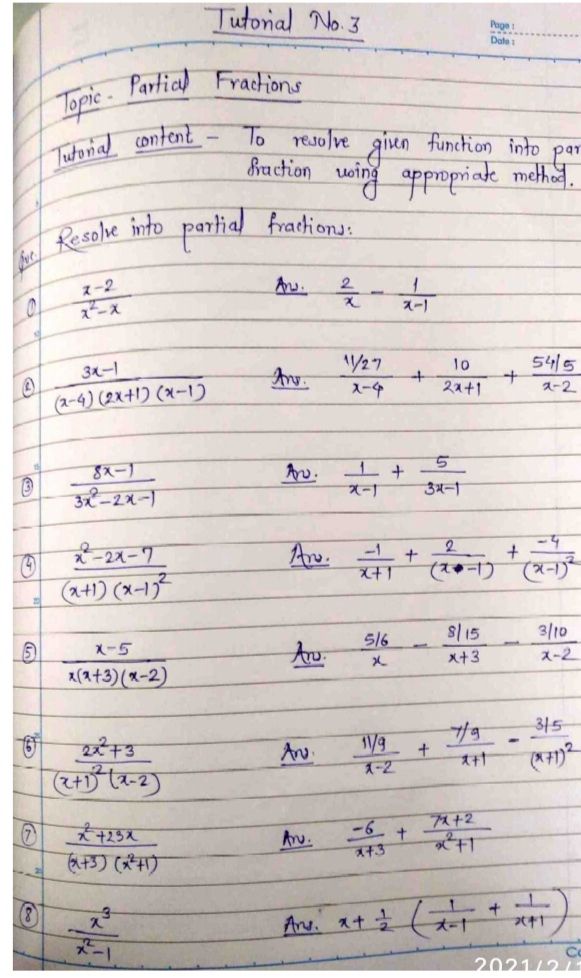 Tutorial No. 3
Page :
Date :
Topic - Partical Fractions
Tutorial content - To resolve given function into par
fraction using appropriate method.
Que. Resolve into partial fractions:
① (x-2)/(x²-x) Ans. 2/x - 1/(x-1)
② (3x-1)/((x-4)(2x+1)(x-1)) Ans. (11/27)/(x-4) + 10/(2x+1) + (54/5)/(x-2)
③ (8x-1)/(3x²-2x-1) Ans. 1/(x-1) + 5/(3x-1)
④ (x²-2x-7)/((x+1)(x-1)²) Ans. -1/(x+1) + 2/(x-1) + -4/(x-1)²
⑤ (x-5)/(x(x+3)(x-2)) Ans. (5/6)/x - (8/15)/(x+3) - (3/10)/(x-2)
⑥ (2x²+3)/((x+1)²(x-2)) Ans. (11/9)/(x-2) + (7/9)/(x+1) - (3/5)/(x+1)²
⑦ (x²+23x)/((x+3)(x²+1)) Ans. -6/(x+3) + (7x+2)/(x²+1)
⑧ x³/(x²-1) Ans. x + 1/2 (1/(x-1) + 1/(x+1))